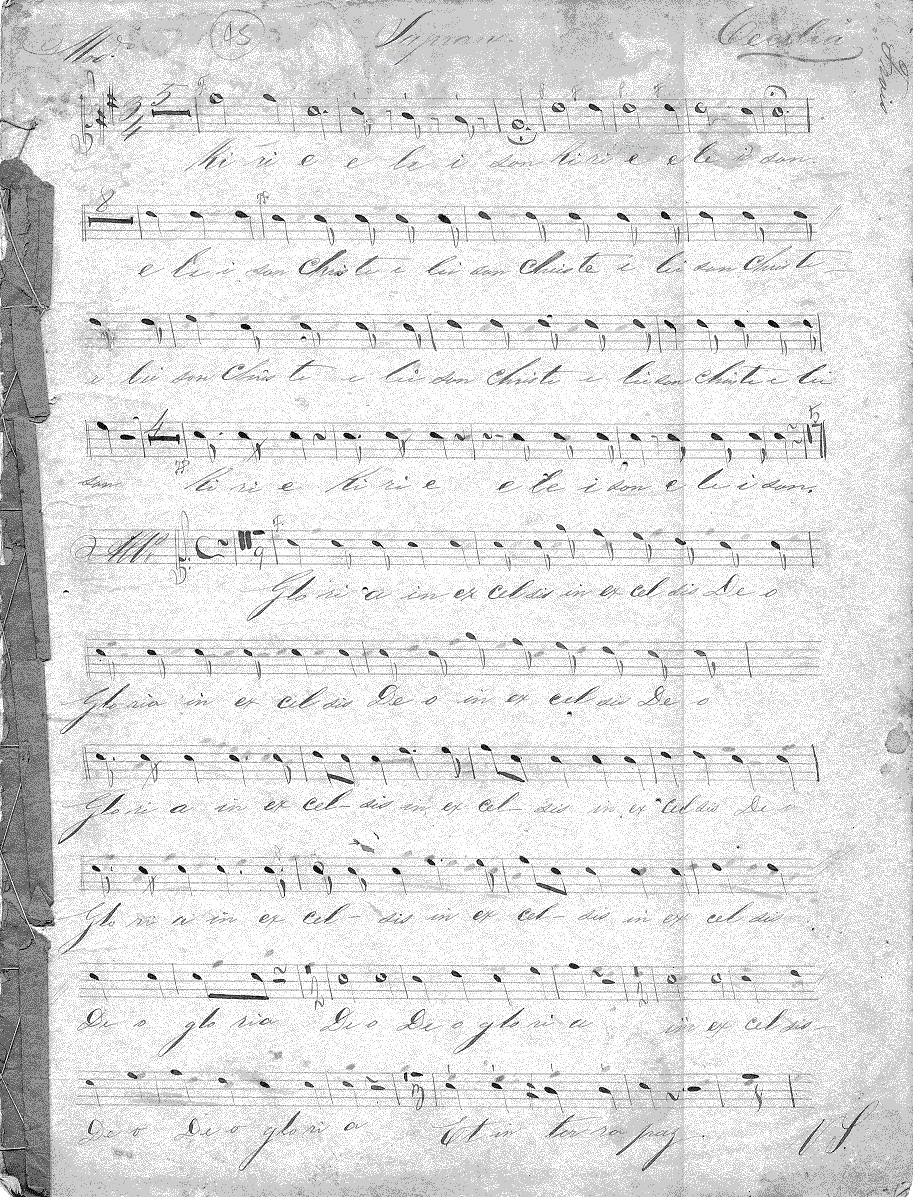 Mod.to 15 Soprano. Cecilia
5
Ki ri e e le i son Ki ri e e le i son.
8
e le i son Christe e lei son Christe e lei son Christe
e lei son Christe e lei son Christe e lei son Christe e lei
4 5
son Ki ri e Ki ri e e le i son e le i son.
9
Glo ri a in ex cel sis in ex cel sis De o
Glo ria in ex cel sis De o in ex cel sis De o
Glo ri a in ex cel - sis in ex cel - sis in ex cel sis De o
Glo ri a in ex cel - sis in ex cel - sis in ex cel sis
De o glo ria De o De o glo ri a in ex cel sis
De o De o glo ri a Et in ter ra paz.